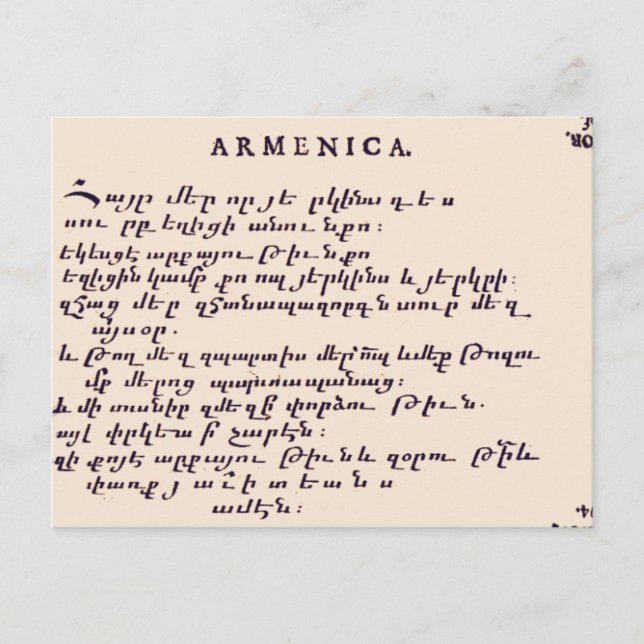 ARMENICA.
Հայր մեր որ յե րկինս գ ե ս
սու րբ եղիցի անու ն.քո :
եկեսցէ արքայու Թիւն.քո
եղիցին կամք քո որպ յերկինս և յերկրի :
զհաց մեր զհանապազորդ ն տուր մե զ
այսօր .
և Թող մե զ զպարտիս մեր որպ և մեք Թողու
մք մերոց պարտապանաց :
և մի տանիր զմեզ ի փորձու Թիւն .
այլ փրկեա ի չարէն :
զի քոյէ արքայու Թիւն և զօրու Թի և
փառք յ ա ւ ի տ ե ա ն ս
ամէն :
OR.